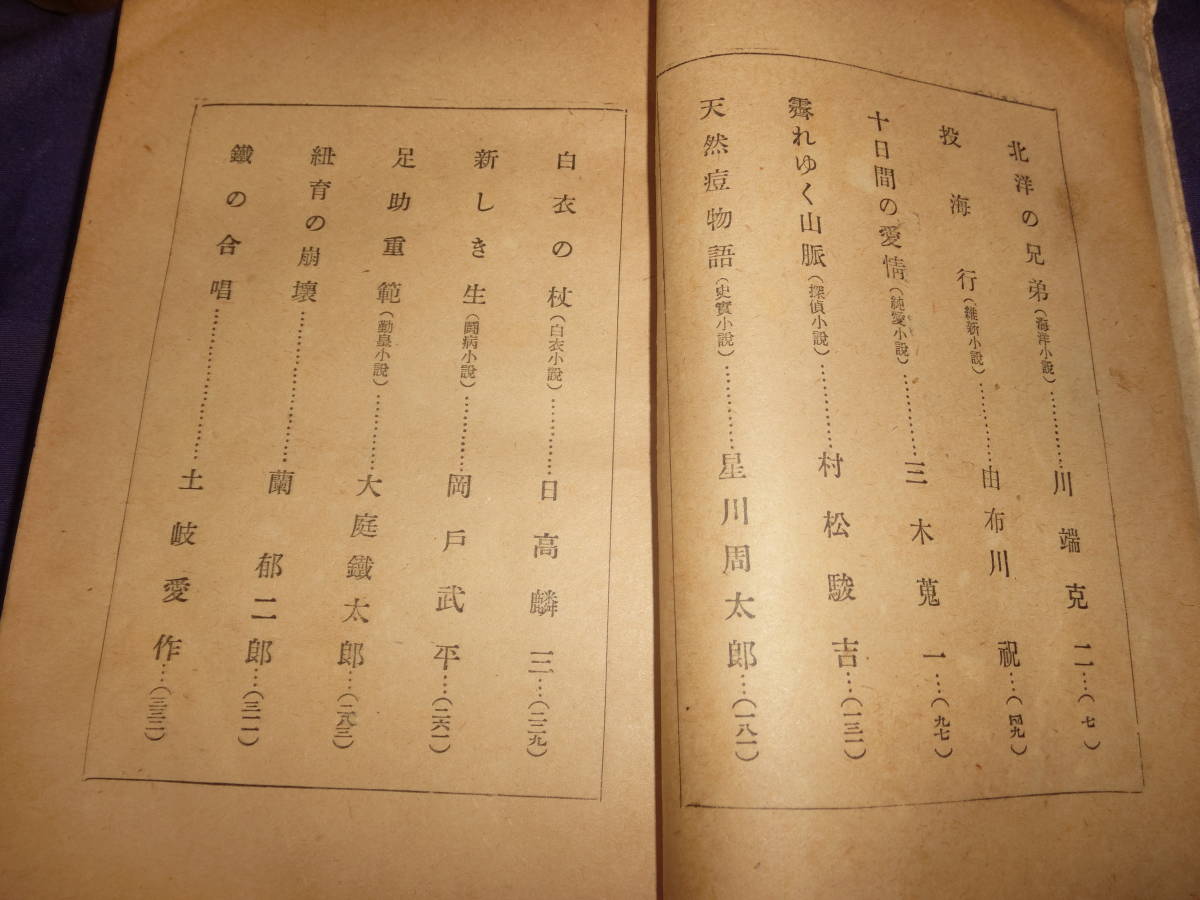 北洋の兄弟(海洋小說)…………川端克二…(七)
投海行(維新小說)…………由布川祝…(四九)
十日間の愛情(純愛小說)…………三木蒐一…(九七)
霽れゆく山脈(探偵小說)…………村松駿吉…(一三一)
天然痘物語(史實小說)…………星川周太郎…(一八一)
白衣の杖(白衣小說)…………日高麟三…(二二九)
新しき生(鬪病小說)…………岡戶武平…(二六一)
足助重範(勤皇小說)…………大庭鐵太郎…(二八三)
紐育の崩壞…………蘭郁二郎…(三一一)
鐵の合唱…………土岐愛作…(三三二)